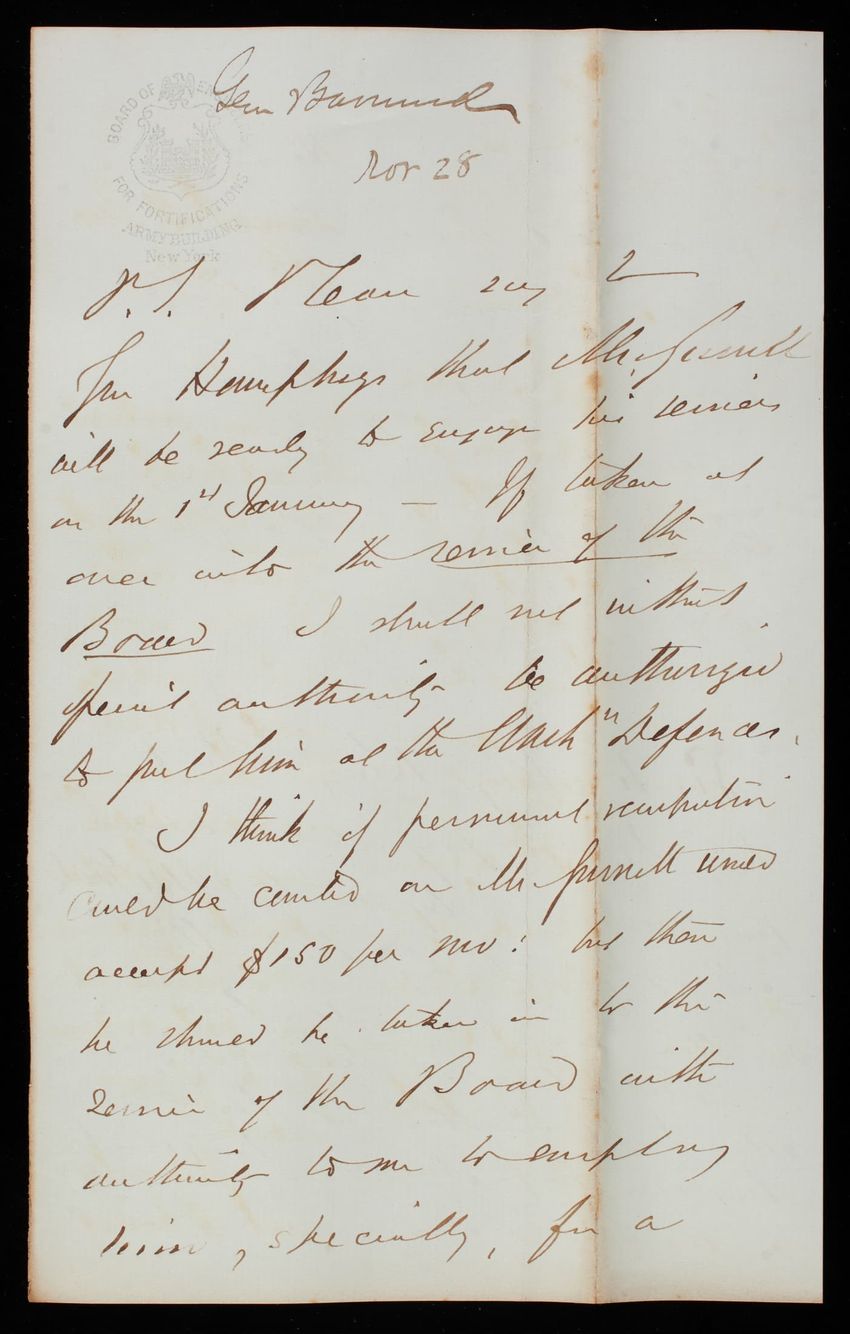 BOARD OF ENGINEERS
FOR FORTIFICATIONS
ARMY BUILDING
New York
Gen Barnard
Nov 28
P.S. Please say to
Gen Humphreys that Mr.
will be ready to engage his services
on the 1st January — If taken at
once into the service of the
Board I shall not without
special authority be authorized
to put him at the Wash'n Defences.
I think if permanent occupation
could be counted on Mr. would
accept $150 per mo: but then
he should be taken in to the
service of the Board with
authority to me to employ
him, specially, for a